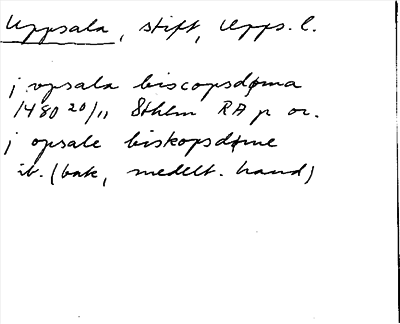 Uppsala, stift, Upps. l.
j vpsala biscopsdøma
1480 20/11 Sthlm RA p or.
j opsale biskopsdøme
ib. (bak, medelt. hand)